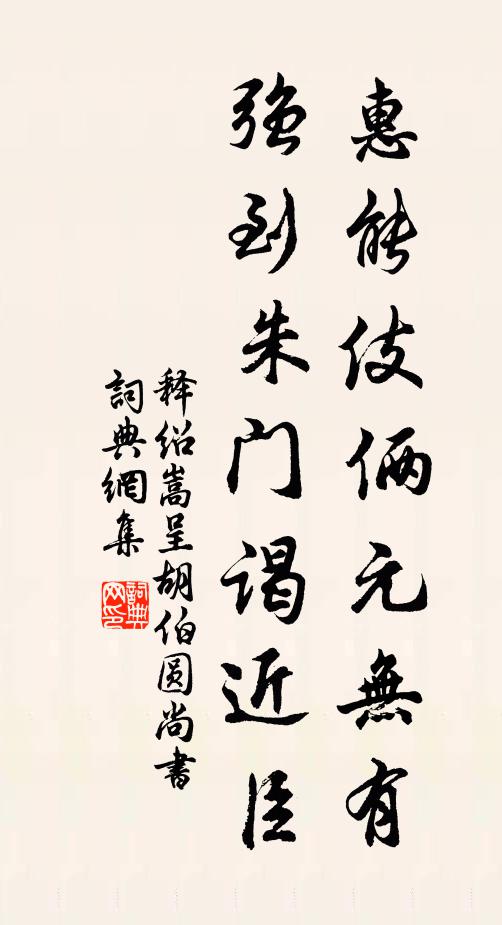 惠能伎倆元無有
强到朱门谒近臣
释绍嵩呈胡伯圆尚書
詞典網集
詞典網印